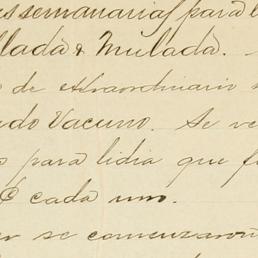 es semanarias para l
llada & Mulada.
de extraordinario
ado Vacuno. Se ve
s para lidia que f
cada uno.
se comenzaron